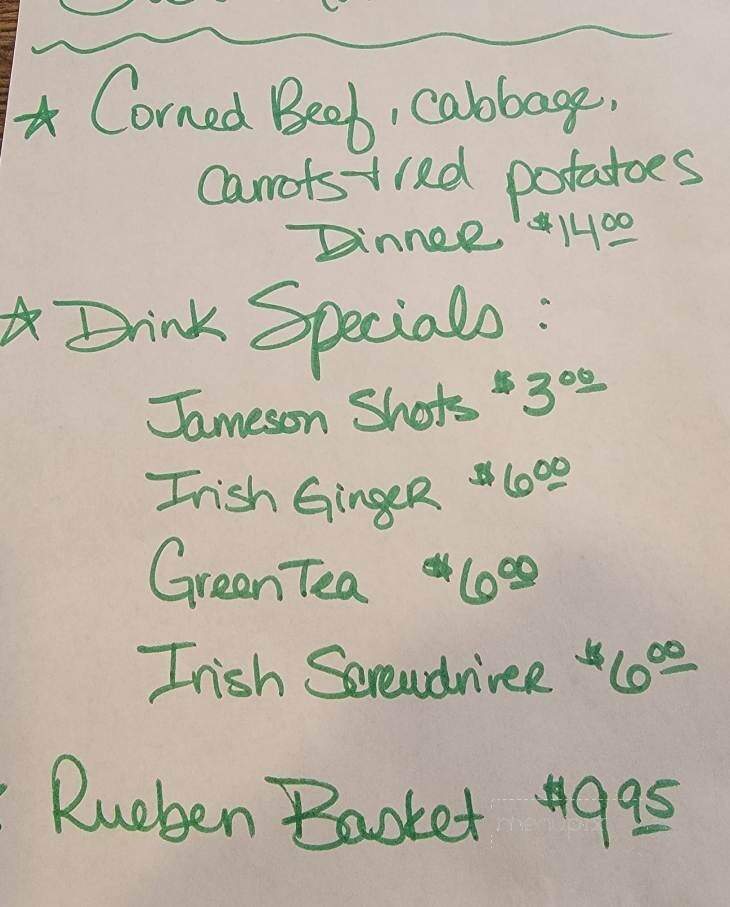 ☆ Corned Beef, cabbage,
carrots + red potatoes
Dinner $14.00
☆ Drink Specials:
Jameson Shots $3.00
Irish Ginger $6.00
Green Tea $6.00
Irish Screwdriver $6.00
Rueben Basket $9.95
menupix